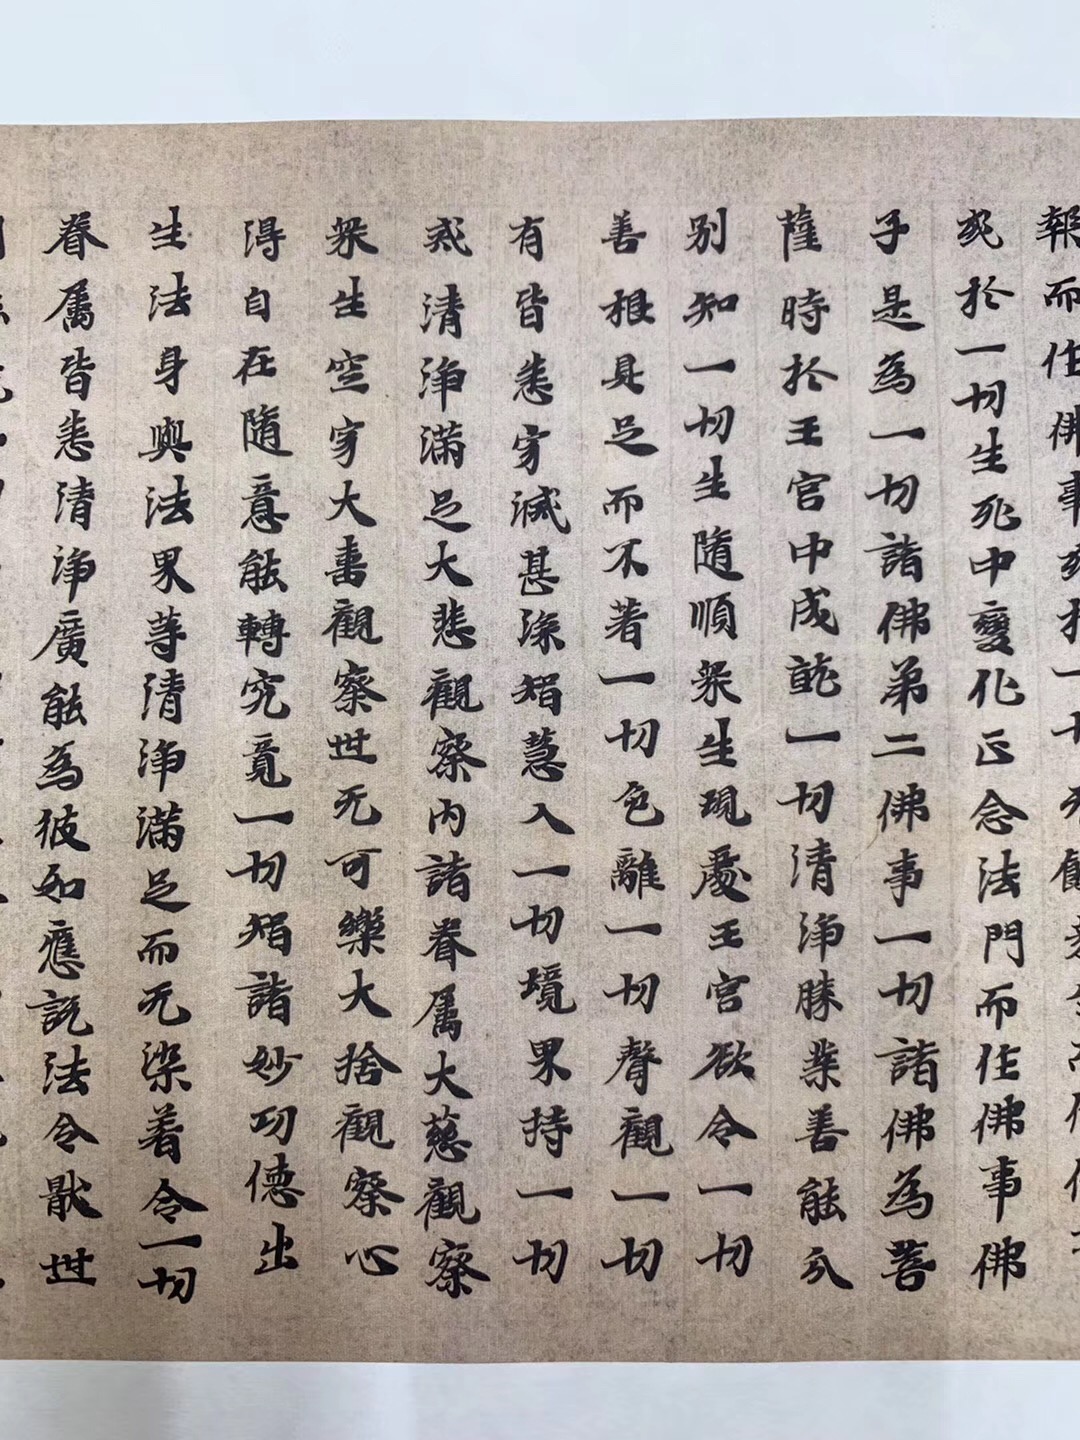 報而住佛事
死於一切生死中變化正念法門而住佛事佛
子是為一切諸佛弟二佛事一切諸佛為菩
薩時於王宮中成就一切清淨勝業善能分
別知一切生隨順眾生現處王宮欲令一切
善根具足而不著一切色離一切聲觀一切
有皆悉穷滅甚深智慧入一切境界持一切
戒清淨滿足大悲觀察內諸眷属大慈觀察
眾生空穷大喜觀察世无可樂大捨觀察心
得自在隨意能轉究竟一切智諸妙功德出
生法身與法界等清淨滿足而无染着令一切
眷属皆悉清淨廣能為彼如應說法令猒世